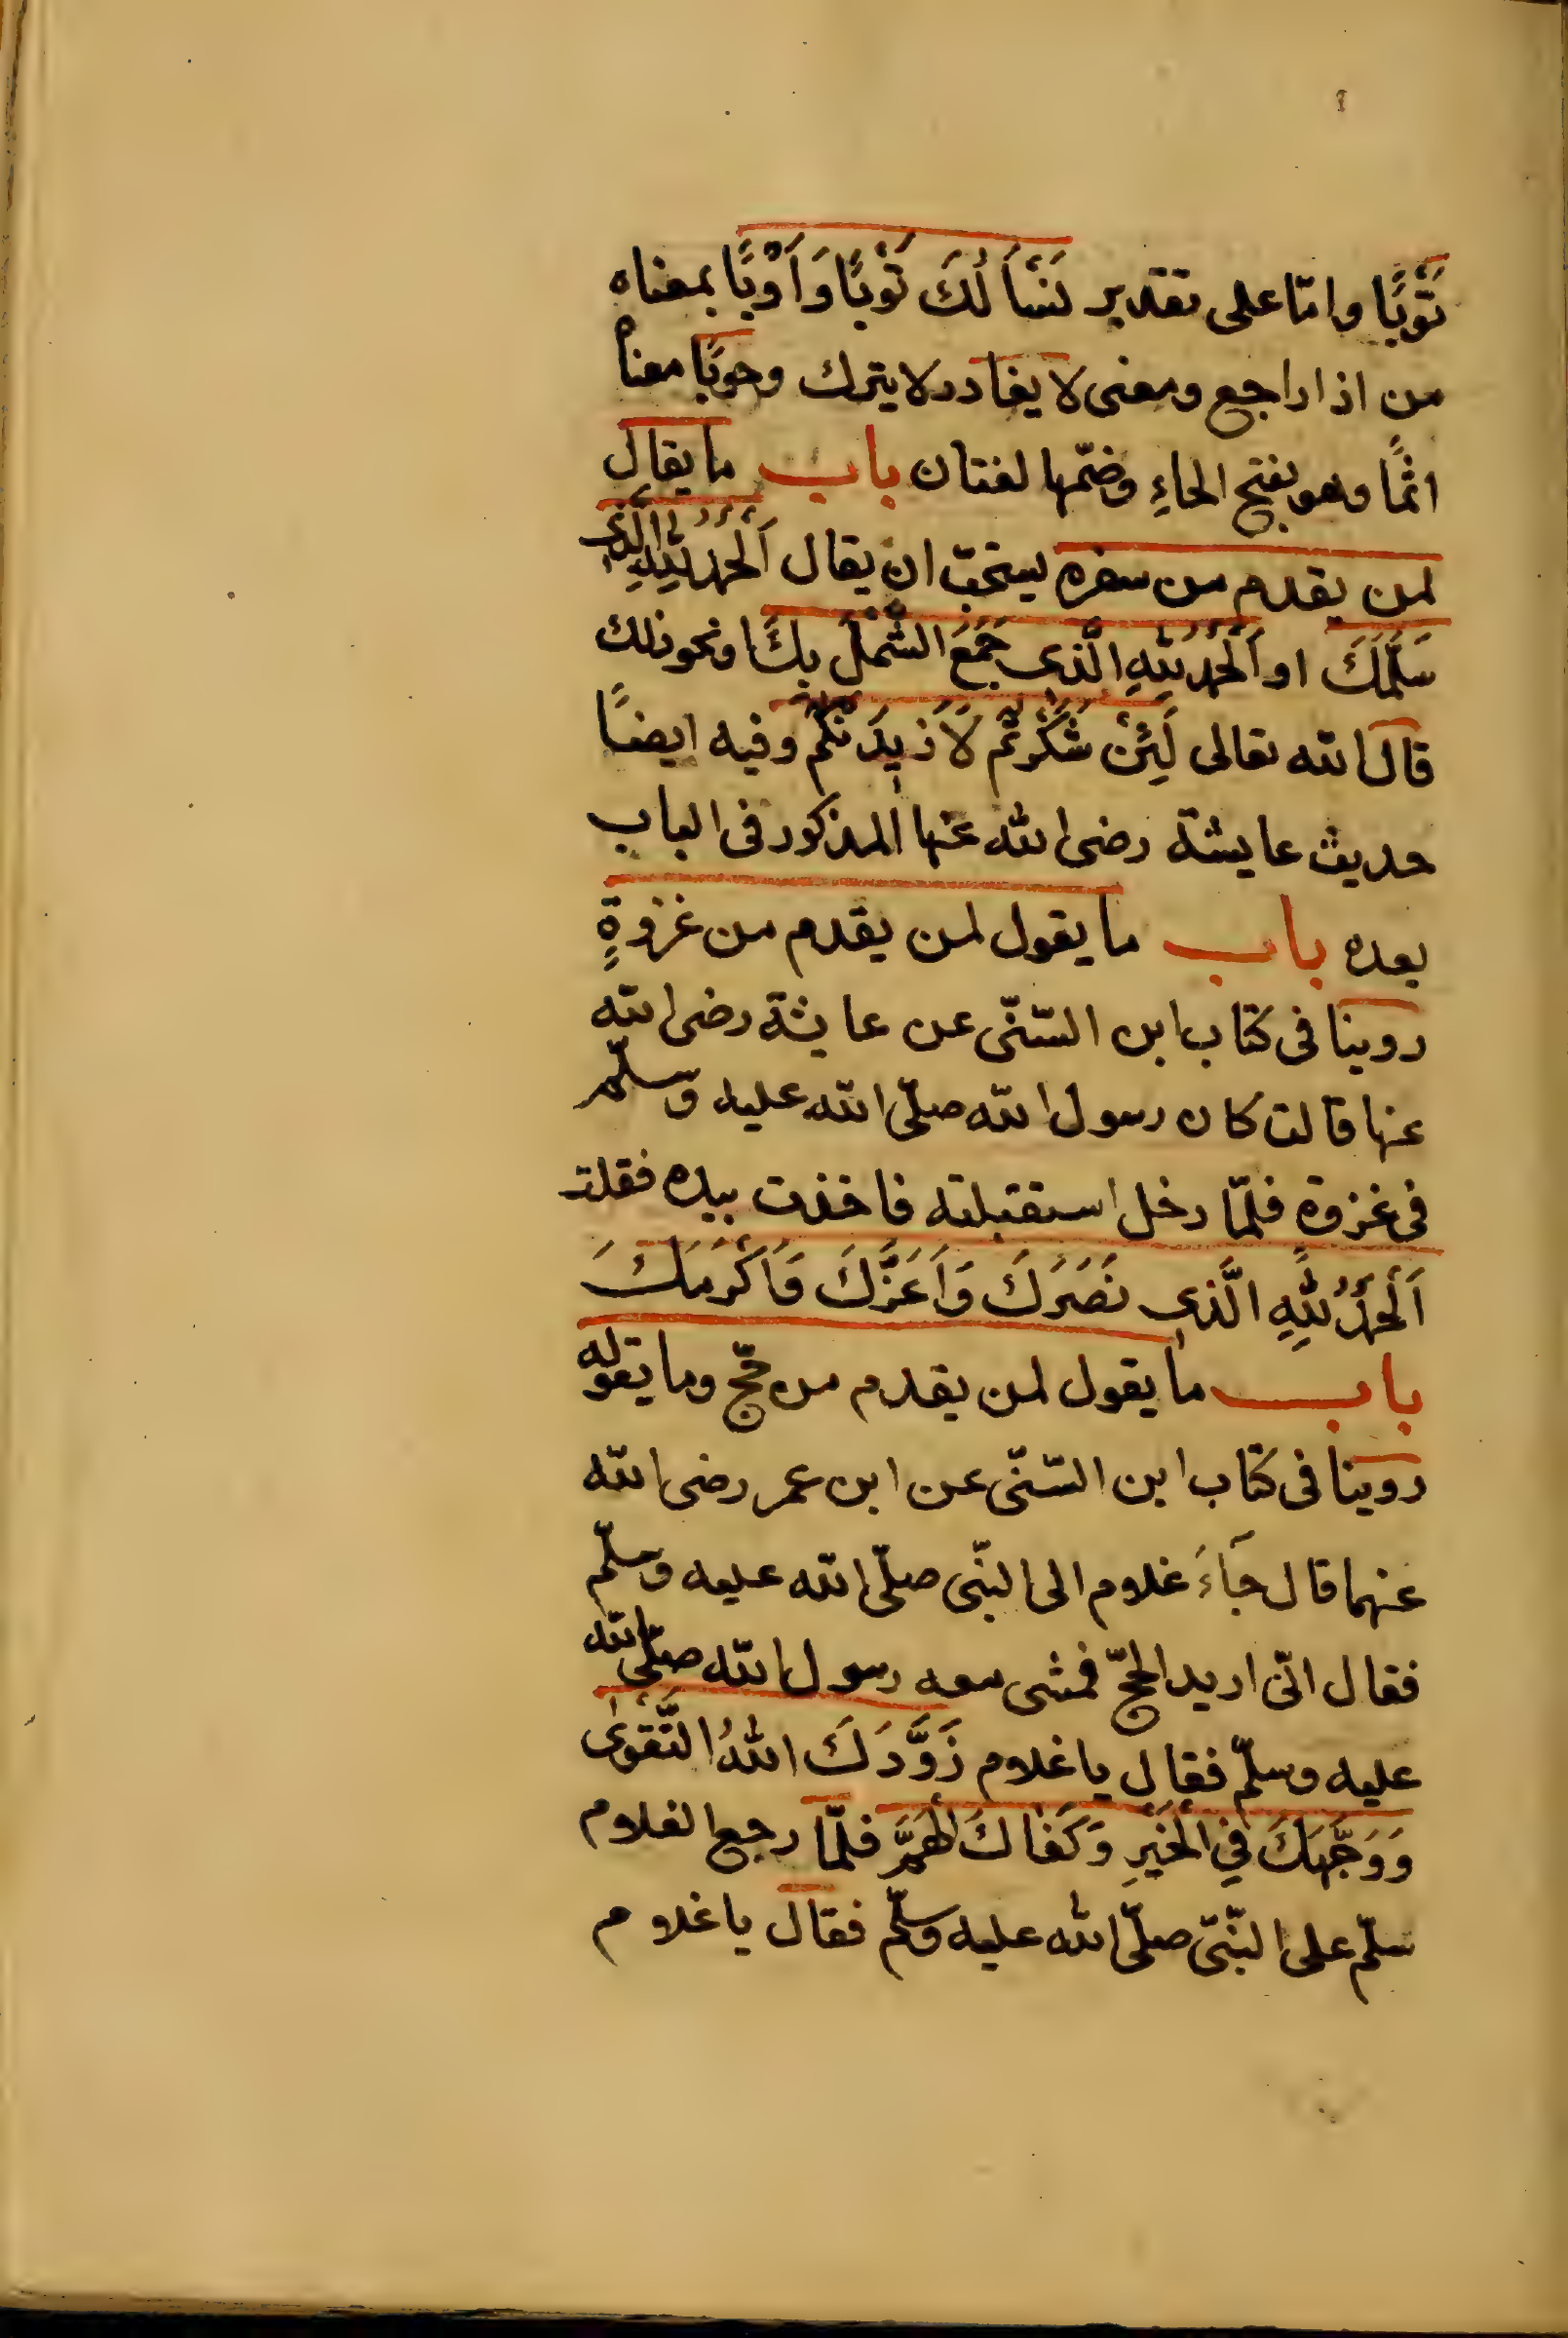 تَوْبًا وامّا على تقدير نَسْأَلُكَ تَوْبًا وَاَوْبًا بمعناه
من اذا راجع ومعنى لا يغادر لا يترك وحوبًا معناه
اثمًا وهو بفتح الحاءِ وضمّها لغتان باب ما يقال
لمن يقدم من سفره يستحبّ ان يقال اَلْحَمْدُ لِلّٰهِ الَّذِي
سَلَّمَكَ او اَلْحَمْدُ لِلّٰهِ الَّذِي جَمَعَ الشَّمْلَ بِكَ ونحو ذلك
قال الله تعالى لَئِنْ شَكَرْتُمْ لَاَزِيدَنَّكُمْ وفيه ايضًا
حديث عايشة رضى الله عنها المذكور فى الباب
بعده باب ما يقول لمن يقدم من غزوةٍ
روينا فى كتاب ابن السّنّى عن عايشة رضى الله
عنها قالت كان رسول الله صلّى الله عليه وسلّم
فى غزوة فلمّا دخل استقبلته فاخذت بيده فقلت
اَلْحَمْدُ لِلّٰهِ الَّذِي نَصَرَكَ وَاَعَزَّكَ وَاَكْرَمَكَ
باب ما يقول لمن يقدم من حجّ وما يقوله
روينا فى كتاب ابن السّنّى عن ابن عمر رضى الله
عنهما قال جَاءَ غلام الى النّبى صلّى الله عليه وسلّم
فقال انّى اريد الحجّ فمشى معه رسول الله صلّى الله
عليه وسلّم فقال يا غلام زَوَّدَكَ اللهُ التَّقْوٰى
وَوَجَّهَكَ فِي الْخَيْرِ وَكَفَاكَ الْهَمَّ فلمّا رجع الغلام
سلّم على النّبىّ صلّى الله عليه وسلّم فقال يا غلام